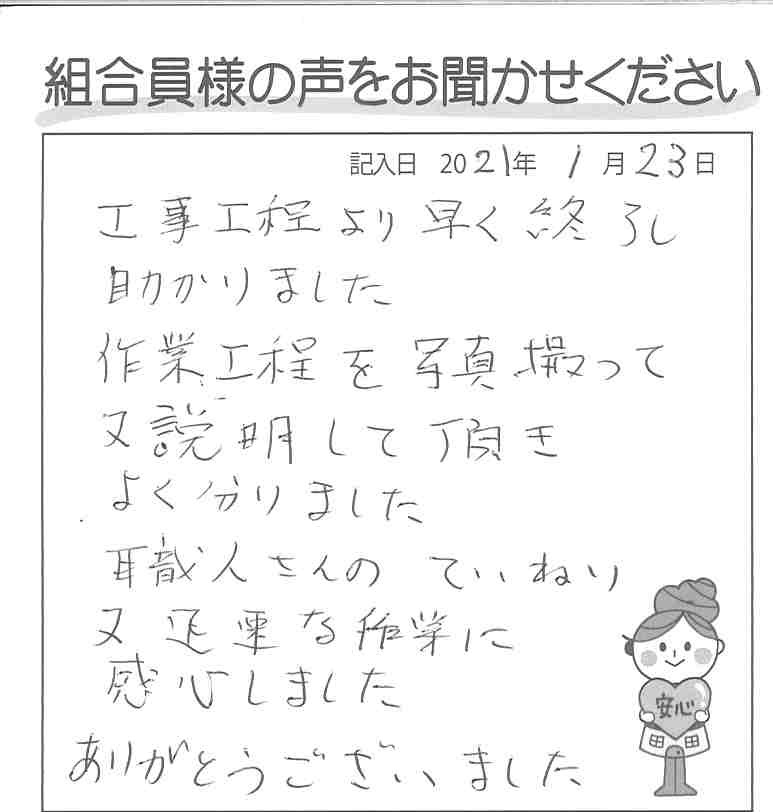 組合員様の声をお聞かせください
記入日 2021年 1月23日
工事工程より早く終了し
助かりました
作業工程を写真撮って
又説明して頂き
よく分りました
職人さんの ていねい
又迅速な作業に
感心しました
安心
ありがとうございました